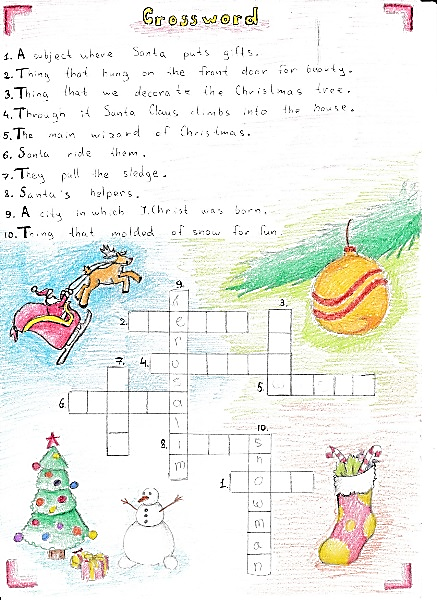 Crossword
1. A subject where Santa puts gifts.
2. Thing that hung on the front door for beauty.
3. Thing that we decorate the Christmas tree.
4. Through it Santa Claus climbs into the house.
5. The main wizard of Christmas.
6. Santa ride them.
7. They pull the sledge.
8. Santa's helpers.
9. A city in which J.Christ was born.
10. Tning that molded of snow for fun.
9.
3.
2.
7.
4.
5.
6.
10.
8.
1.
snowman